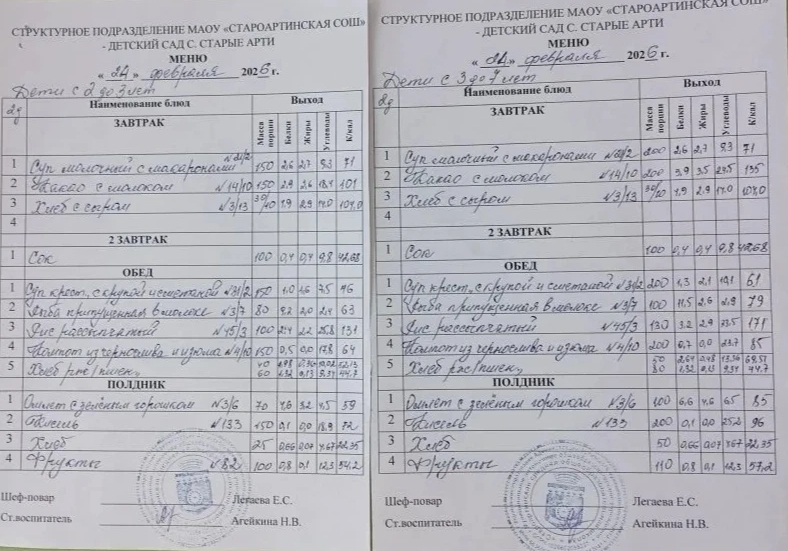 СТРУКТУРНОЕ ПОДРАЗДЕЛЕНИЕ МАОУ «СТАРОАРТИНСКАЯ СОШ»
- ДЕТСКИЙ САД С. СТАРЫЕ АРТИ
МЕНЮ
« 24 » февраля 2026 г.
Дети с 2 до 3 лет
2д Наименование блюд Выход
ЗАВТРАК Масса порции Белки Жиры Углеводы К/кал
1 Суп молочный с макаронами 150 2,6 2,7 9,3 71
2 Какао с молоком №14/10 150 2,9 2,6 101
3 Хлеб с сыром №3/13 30/10 1,9 2,9 107,0
4
2 ЗАВТРАК
1 Сок 100 0,4 0,4 9,8 42,68
ОБЕД
1 Суп крест. с крупой и сметаной №31/2 150 1,0 2,6 7,5 46
2 Рыба припущенная в молоке №3/7 80 9,2 2,0 2,4 63
3 Рис рассыпчатый №45/3 100 2,4 2,2 25,8 131
4 Компот из чернослива и изюма №4/10 150 0,5 0,0 17,8 64
5 Хлеб рж/пшен. 40 60 1,32 0,13 44,7
ПОЛДНИК
1 Омлет с зелёным горошком №3/6 70 4,6 3,2 4,5 59
2 Кисель №133 150 0,1 0,0 18,9 72
3 Хлеб 25 0,66 0,07 4,67 22,35
4 Фрукты №82 100 0,8 0,1 12,3 54,2
Шеф-повар Легаева Е.С.
Ст.воспитатель Агейкина Н.В.
СТРУКТУРНОЕ ПОДРАЗДЕЛЕНИЕ МАОУ «СТАРОАРТИНСКАЯ СОШ»
- ДЕТСКИЙ САД С. СТАРЫЕ АРТИ
МЕНЮ
« 24 » февраля 2026 г.
Дети с 3 до 7 лет
2д Наименование блюд Выход
ЗАВТРАК Масса порции Белки Жиры Углеводы К/кал
1 Суп молочный с макаронами 200 2,6 2,7 9,3 71
2 Какао с молоком №14/10 200 3,9 3,5 135
3 Хлеб с сыром №3/13 30/10 1,9 2,9 107,0
4
2 ЗАВТРАК
1 Сок 100 0,4 0,4 9,8 42,68
ОБЕД
1 Суп крест. с крупой и сметаной №31/2 200 1,3 2,1 61
2 Рыба припущенная в молоке №3/7 100 11,5 2,6 2,9 79
3 Рис рассыпчатый №45/3 130 3,2 2,9 171
4 Компот из чернослива и изюма №4/10 200 0,7 0,0 23,7 85
5 Хлеб рж/пшен. 50 80 2,64 0,48 13,36 1,32 0,13 44,7
ПОЛДНИК
1 Омлет с зелёным горошком №3/6 100 6,6 4,6 6,5 85
2 Кисель №133 200 0,1 0,0 25,2 96
3 Хлеб 50 0,66 0,07 4,67 22,35
4 Фрукты 110 0,8 0,1 12,3 57,2
Шеф-повар Легаева Е.С.
Ст.воспитатель Агейкина Н.В.